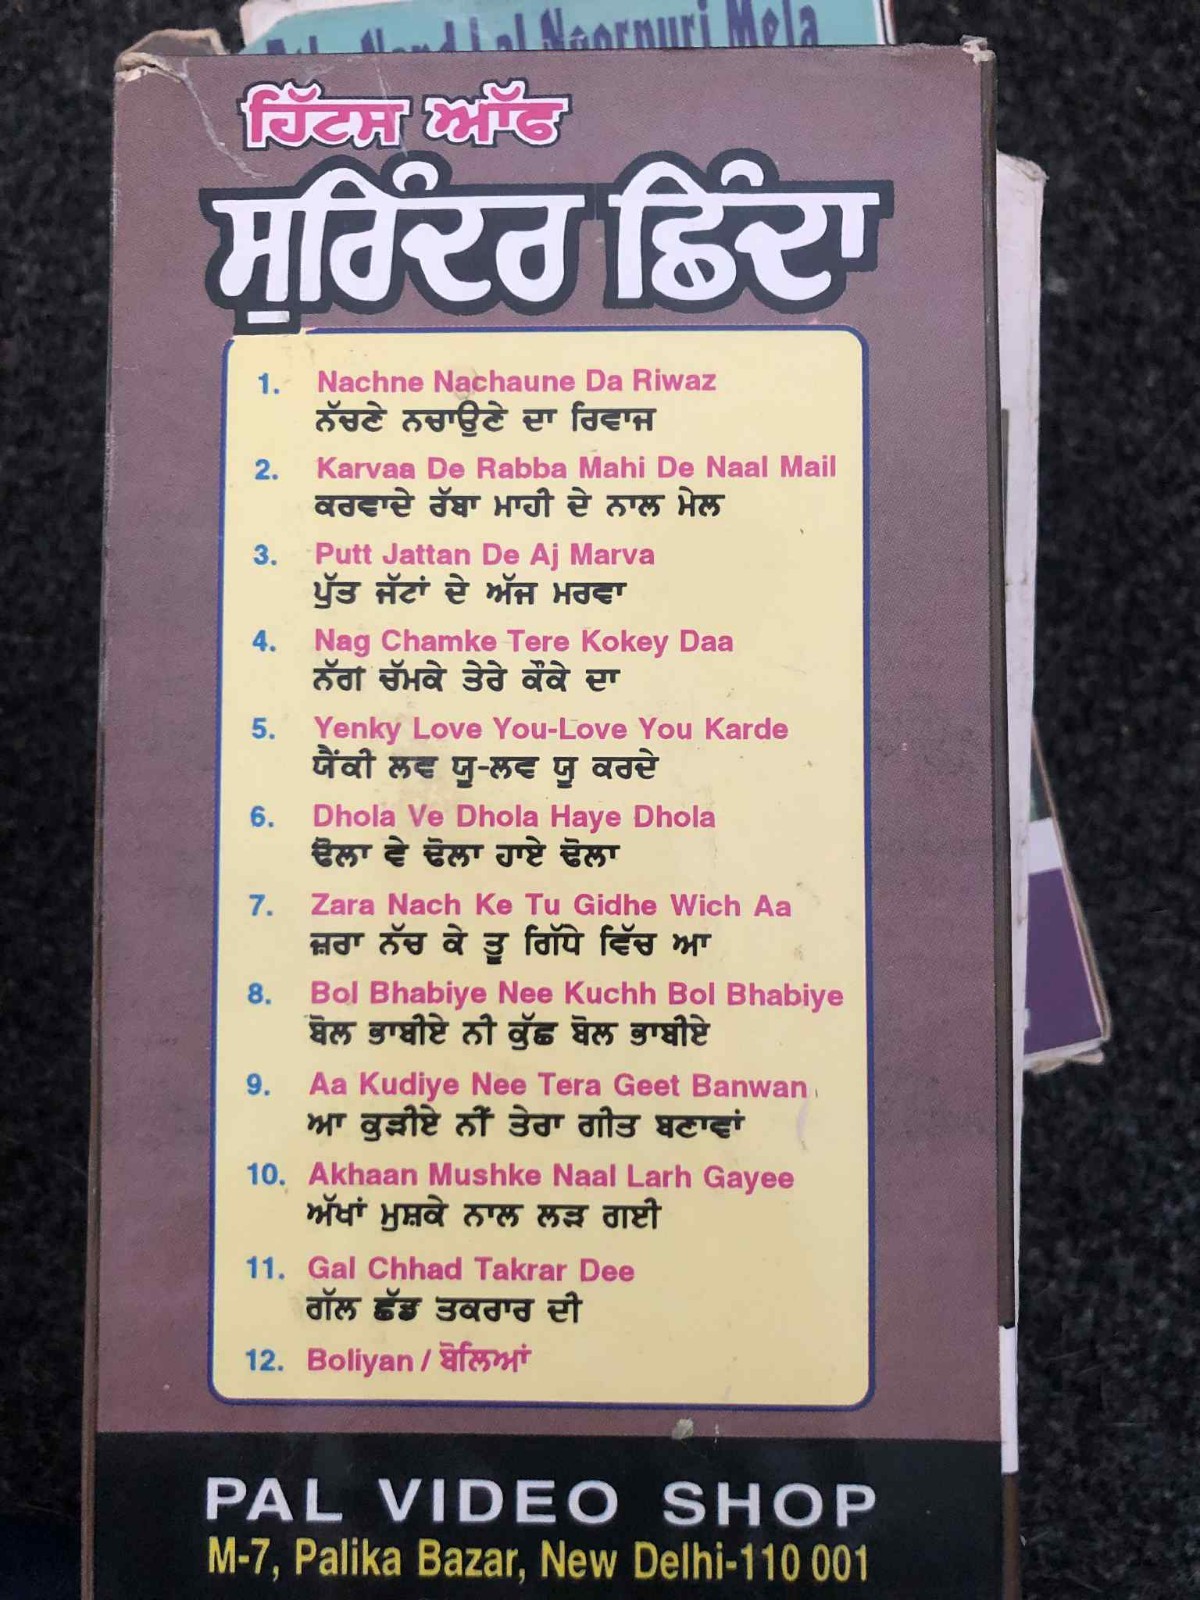 Nand Lal Noorpuri Mela
ਹਿੱਟਸ ਆੱਫ
ਸੁਰਿੰਦਰ ਛਿੰਦਾ
1. Nachne Nachaune Da Riwaz
ਨੱਚਣੇ ਨਚਾਉਣੇ ਦਾ ਰਿਵਾਜ
2. Karvaa De Rabba Mahi De Naal Mail
ਕਰਵਾਦੇ ਰੱਬਾ ਮਾਹੀ ਦੇ ਨਾਲ ਮੇਲ
3. Putt Jattan De Aj Marva
ਪੁੱਤ ਜੱਟਾਂ ਦੇ ਅੱਜ ਮਰਵਾ
4. Nag Chamke Tere Kokey Daa
ਨੱਗ ਚੱਮਕੇ ਤੇਰੇ ਕੌਕੇ ਦਾ
5. Yenky Love You-Love You Karde
ਯੈਂਕੀ ਲਵ ਯੂ-ਲਵ ਯੂ ਕਰਦੇ
6. Dhola Ve Dhola Haye Dhola
ਢੋਲਾ ਵੇ ਢੋਲਾ ਹਾਏ ਢੋਲਾ
7. Zara Nach Ke Tu Gidhe Wich Aa
ਜ਼ਰਾ ਨੱਚ ਕੇ ਤੂ ਗਿੱਧੇ ਵਿੱਚ ਆ
8. Bol Bhabiye Nee Kuchh Bol Bhabiye
ਬੋਲ ਭਾਬੀਏ ਨੀ ਕੁੱਛ ਬੋਲ ਭਾਬੀਏ
9. Aa Kudiye Nee Tera Geet Banwan
ਆ ਕੁੜੀਏ ਨੀਂ ਤੇਰਾ ਗੀਤ ਬਣਾਵਾਂ
10. Akhaan Mushke Naal Larh Gayee
ਅੱਖਾਂ ਮੁਸ਼ਕੇ ਨਾਲ ਲੜ ਗਈ
11. Gal Chhad Takrar Dee
ਗੱਲ ਛੱਡ ਤਕਰਾਰ ਦੀ
12. Boliyan / ਬੋਲਿਆਂ
PAL VIDEO SHOP
M-7, Palika Bazar, New Delhi-110 001